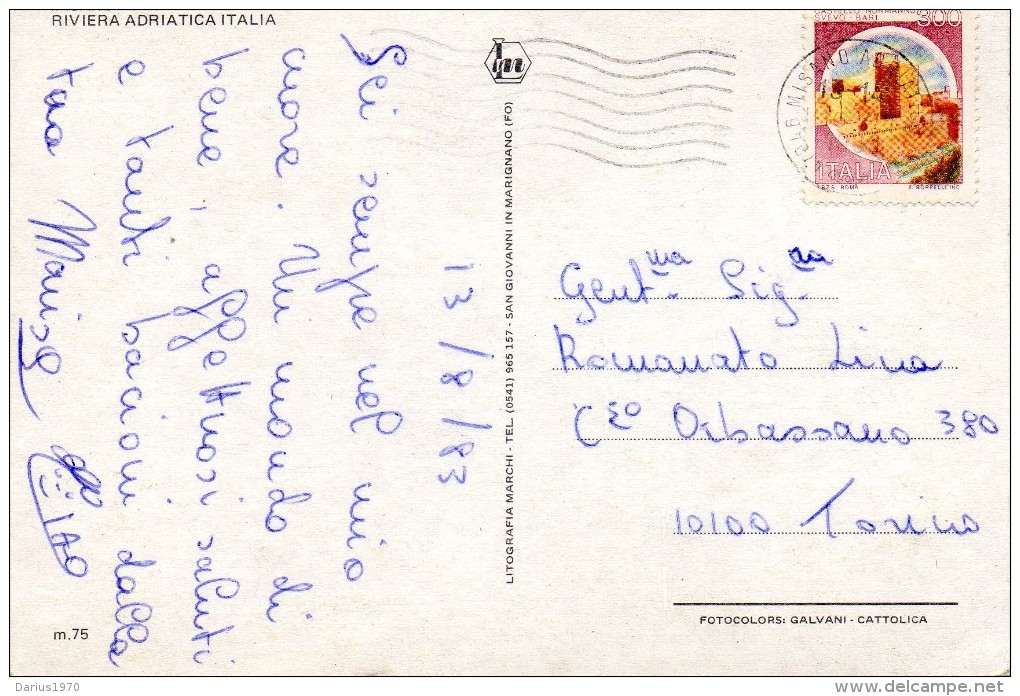 RIVIERA ADRIATICA ITALIA
13/8/83
Sei sempre nel mio
cuore. Un mondo di
bene, affettuosi saluti
e tanti bacioni dalla
tua Marisa
CIAO
m.75
LITOGRAFIA MARCHI - TEL. (0541) 965 157 - SAN GIOVANNI IN MARIGNANO (FO)
m
CASTELLO NORMANNO
SVEVO - BARI
300
ITALIA
I.P.Z.S. ROMA
MISANO
Gent.ma Sig.na
Romanato Lina
C.so Orbassano 380
10100 Torino
FOTOCOLORS: GALVANI - CATTOLICA
Darius1970
www.delcampe.net